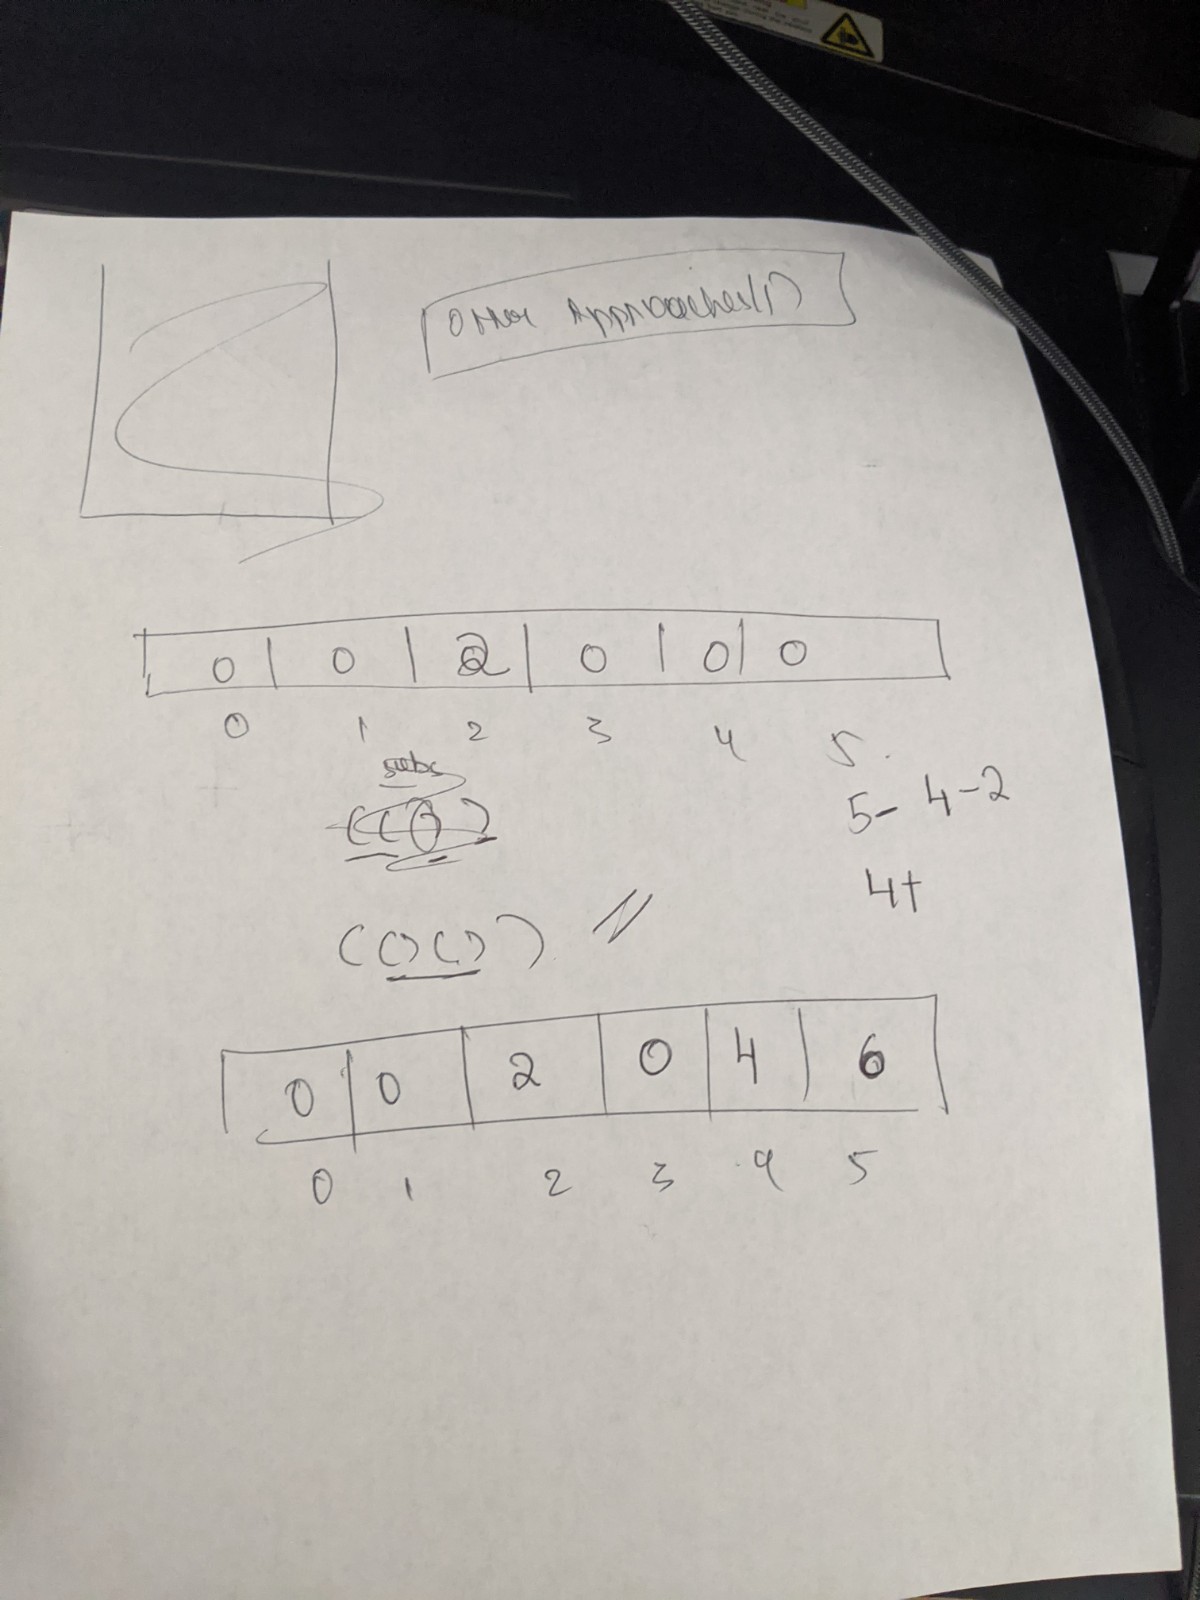 Other Approaches/1)
0 | 0 | 2 | 0 | 0 | 0
0 1 2 3 4 5.
subs
5- 4-2
4+
(()())
0 | 0 | 2 | 0 | 4 | 6
0 1 2 3 4 5